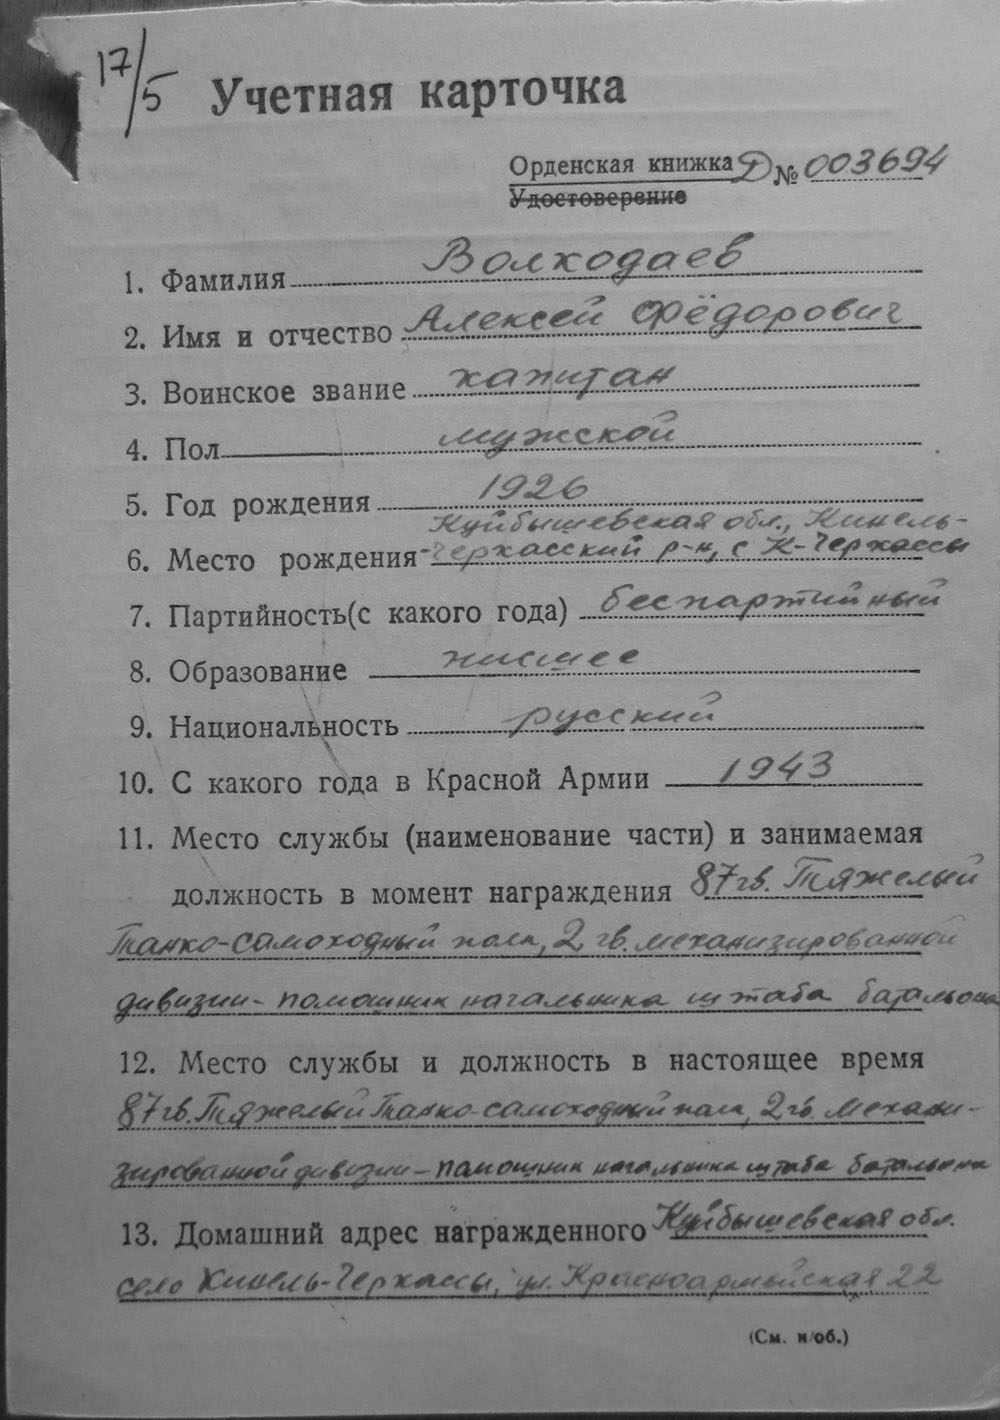 17/5
Учетная карточка
Орденская книжка Д № 003694
Удостоверение
1. Фамилия Волкодаев
2. Имя и отчество Алексей Фёдорович
3. Воинское звание капитан
4. Пол мужской
5. Год рождения 1926
Куйбышевская обл., Кинель-
6. Место рождения -Черкасский р-н, с К-Черкассы
7. Партийность(с какого года) беспартийный
8. Образование низшее
9. Национальность русский
10. С какого года в Красной Армии 1943
11. Место службы (наименование части) и занимаемая
должность в момент награждения 87 гв. Тяжелый
Танко-самоходный полк, 2 гв. механизированной
дивизии - помошник начальника штаба батальона
12. Место службы и должность в настоящее время
87 гв. Тяжелый Танко-самоходный полк, 2 гв. Механи-
зированной дивизии - помошник начальника штаба батальона
13. Домашний адрес награжденного Куйбышевская обл.
село Кинель-Черкассы, ул. Красноармейская 22
(См. н/об.)